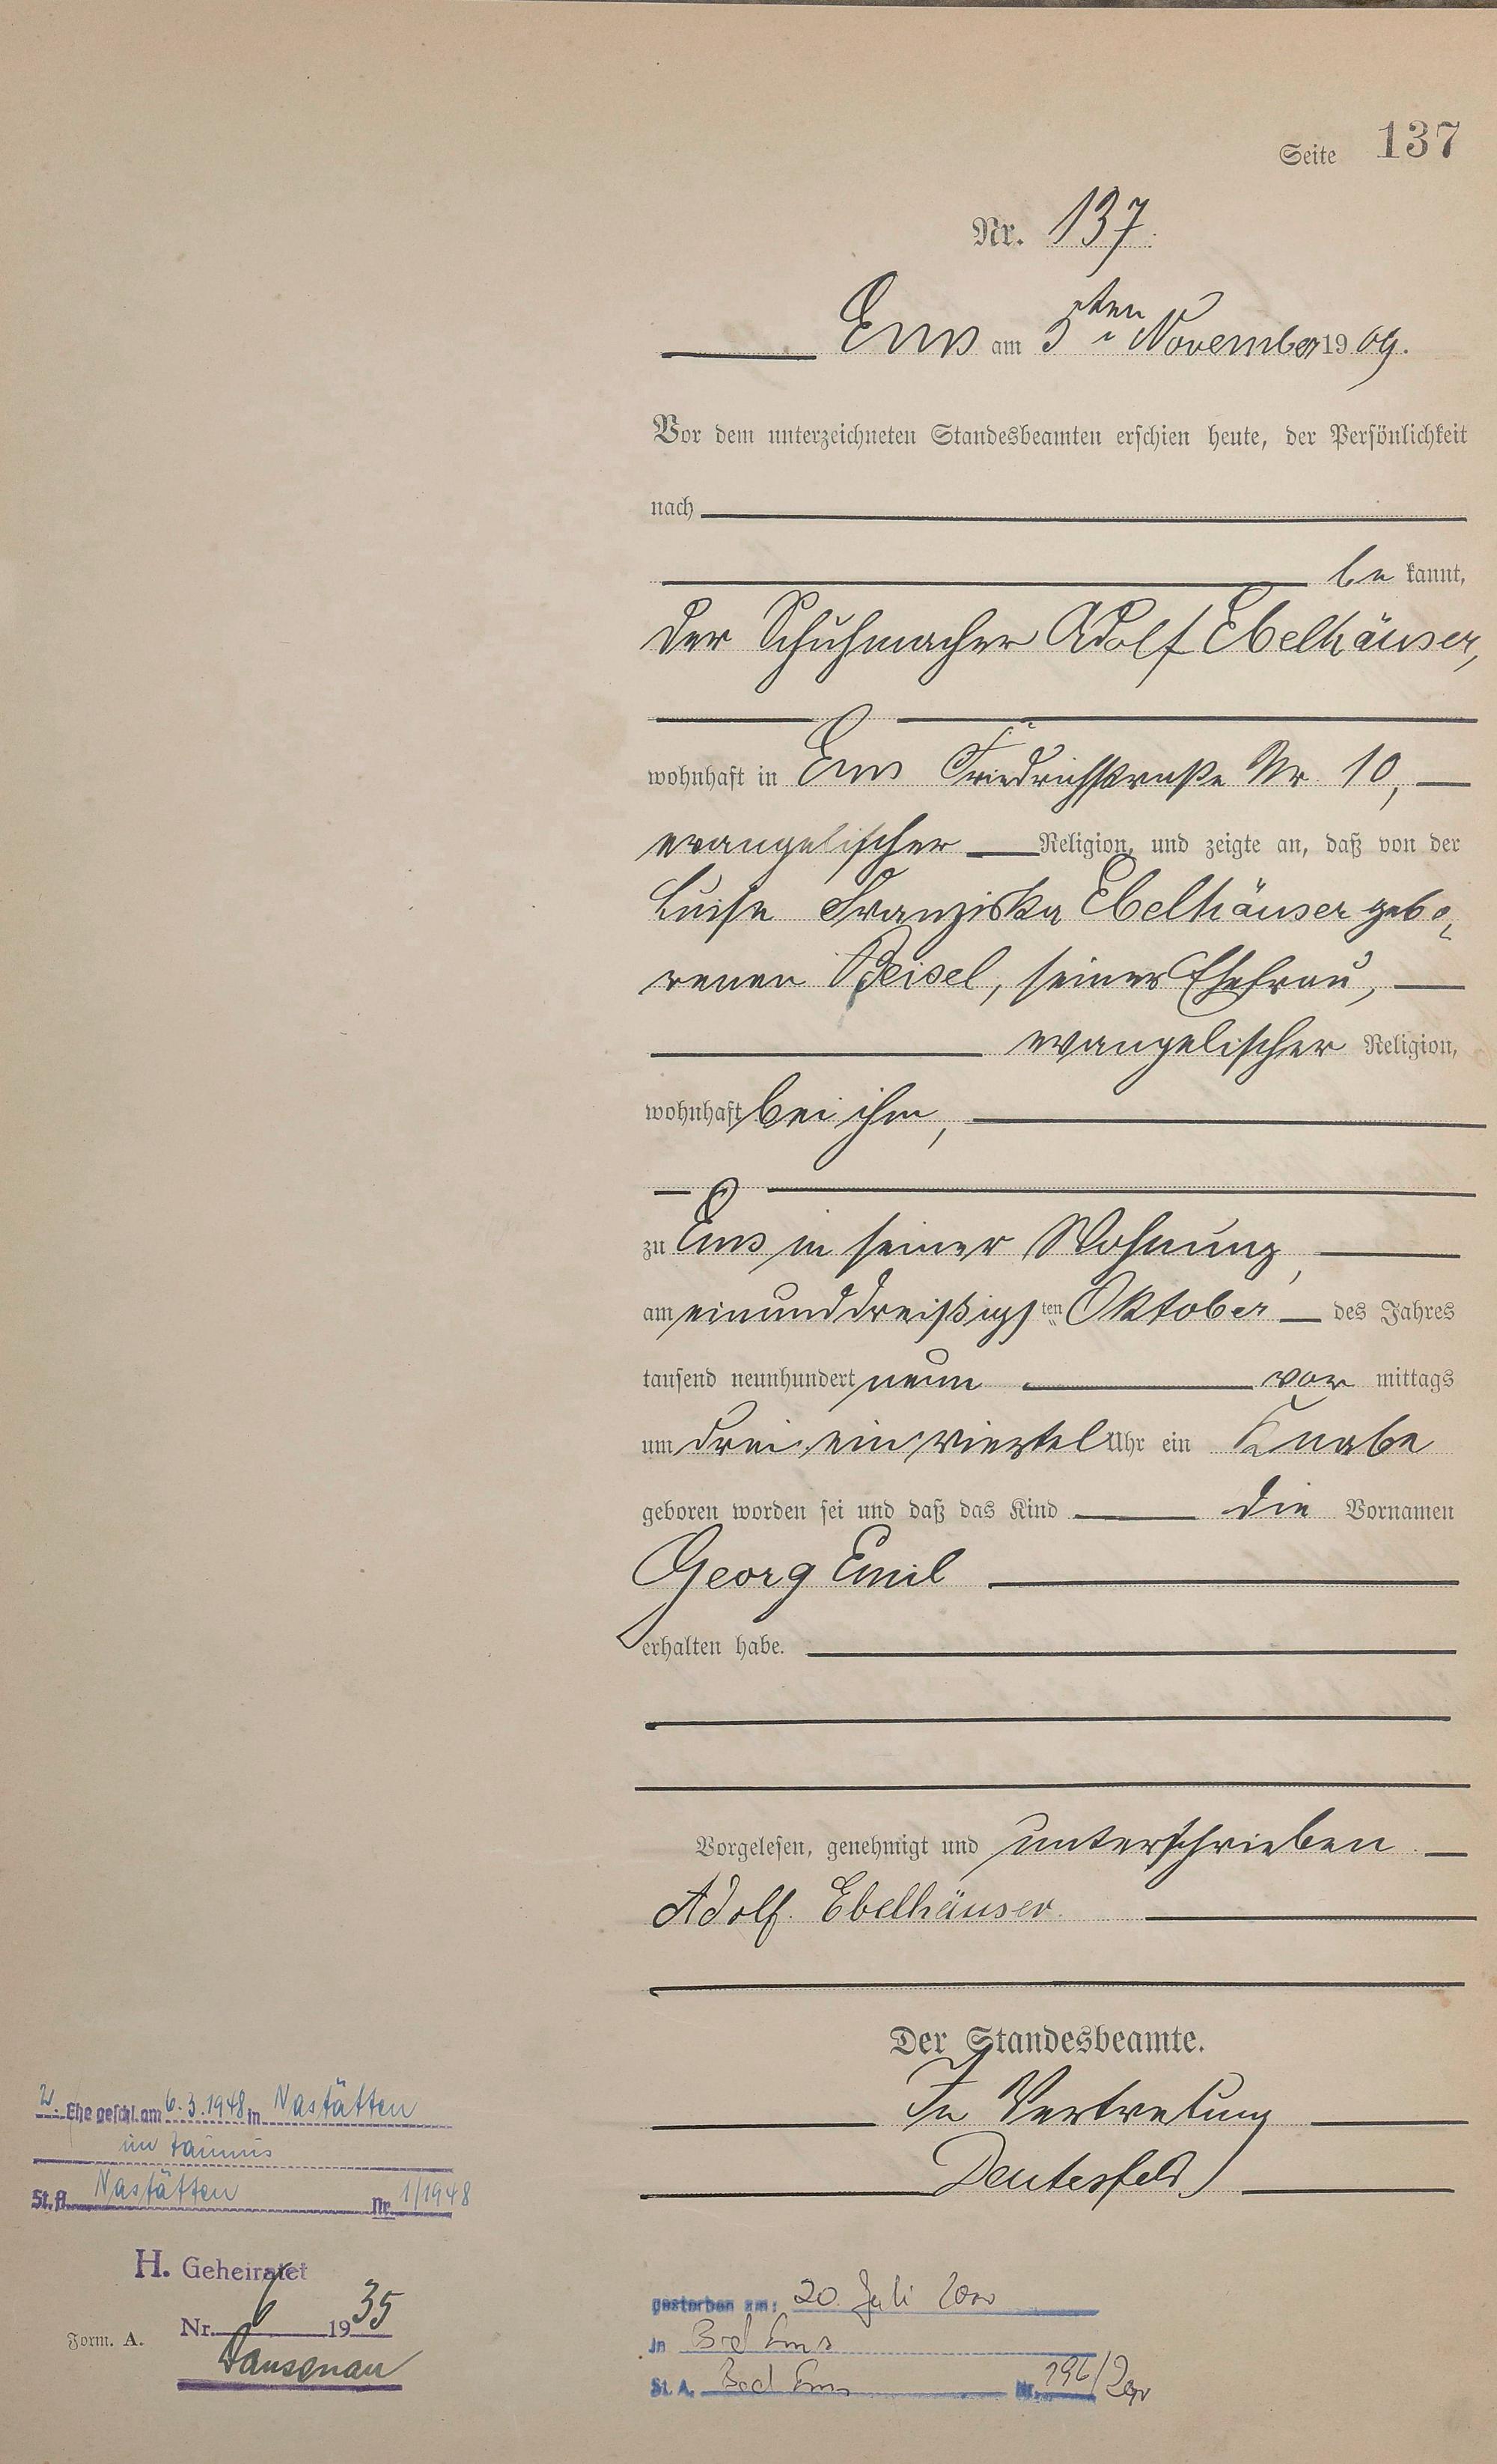 Seite 137
Nr. 137.
Ems am 5ten November 1909.
Vor dem unterzeichneten Standesbeamten erschien heute, der Persönlichkeit
nach
be kannt,
der Schuhmacher Adolf Ebelhäuser,
wohnhaft in Ems Friedrichstraße Nr. 10,
evangelischer Religion, und zeigte an, daß von der
Luise Franziska Ebelhäuser gebo-
renen Beisel, seiner Ehefrau,
evangelischer Religion,
wohnhaft bei ihm,
zu Ems in seiner Wohnung,
am einunddreißigsten Oktober des Jahres
tausend neunhundert neun vor mittags
um drei ein viertel Uhr ein Knabe
geboren worden sei und daß das Kind die Vornamen
Georg Emil
erhalten habe.
Vorgelesen, genehmigt und unterschrieben
Adolf Ebelhäuser.
Der Standesbeamte.
In Vertretung
Deutesfeld
2. Ehe geschl. am 6.3.1948 in Nastätten
im Taunus
St.A. Nastätten Nr. 1/1948
H. Geheiratet
Nr. 6 1935
Dausenau
Form. A.
gestorben am: 20. Juli 2000
in Bad Ems
St. A. Bad Ems Nr. 196/2000